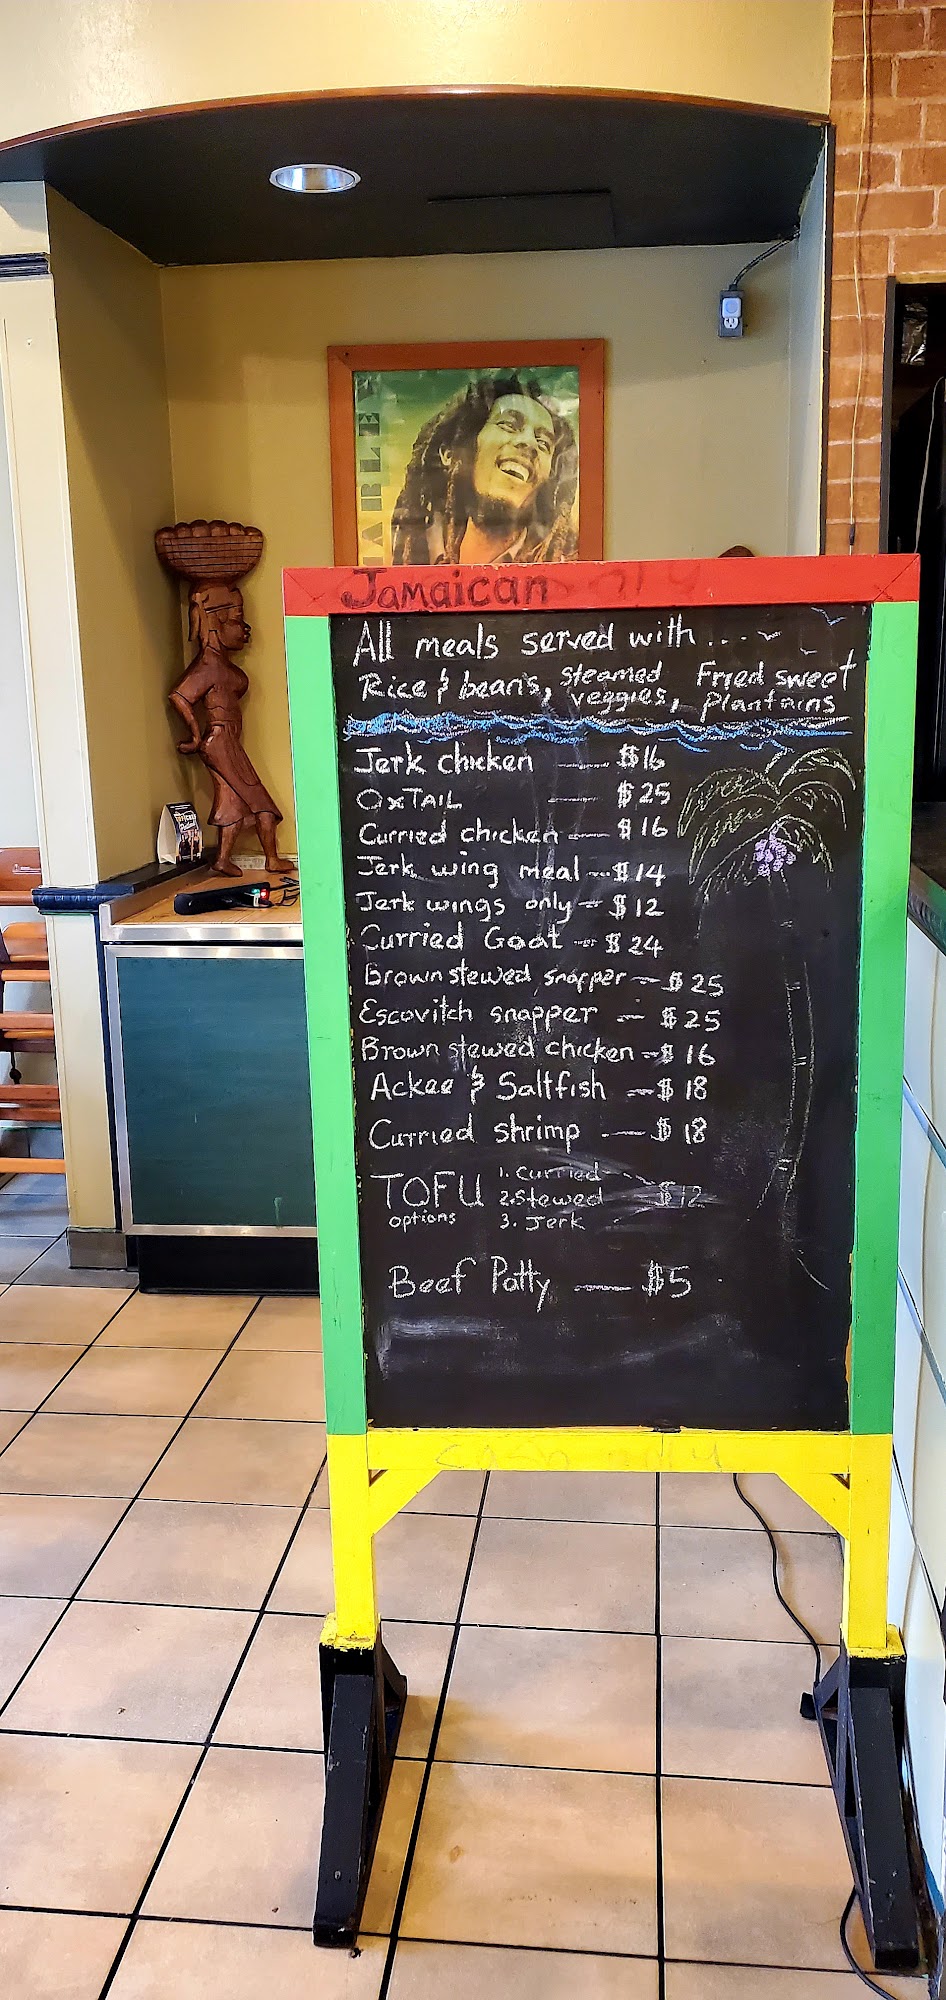 MARLEY
Jamaican only
All meals served with....
Rice & beans, steamed veggies, Fried sweet plantains
Jerk chicken — $16
OxTAIL — $25
Curried chicken — $16
Jerk wing meal — $14
Jerk wings only — $12
Curried Goat — $24
Brown stewed snapper — $25
Escovitch snapper — $25
Brown stewed chicken — $16
Ackee & Saltfish — $18
Curried shrimp — $18
TOFU options
1. Curried
2. Stewed $12
3. Jerk
Beef Patty — $5
cash only